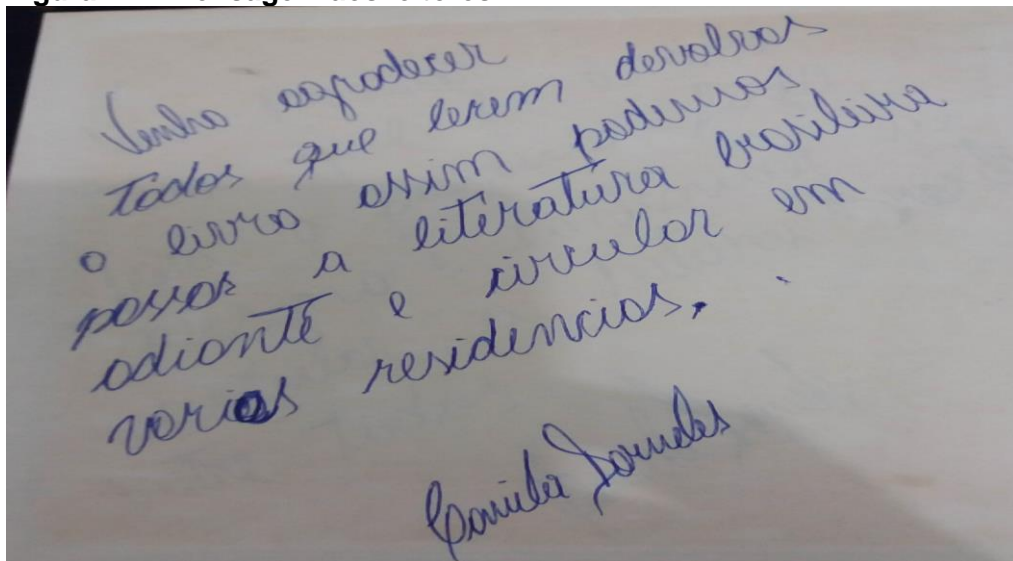 Venho agradecer
Todos que lerem devolvas
o livro assim podemos
passar a literatura brasileira
adiante e circular em
varias residencias.
Camila